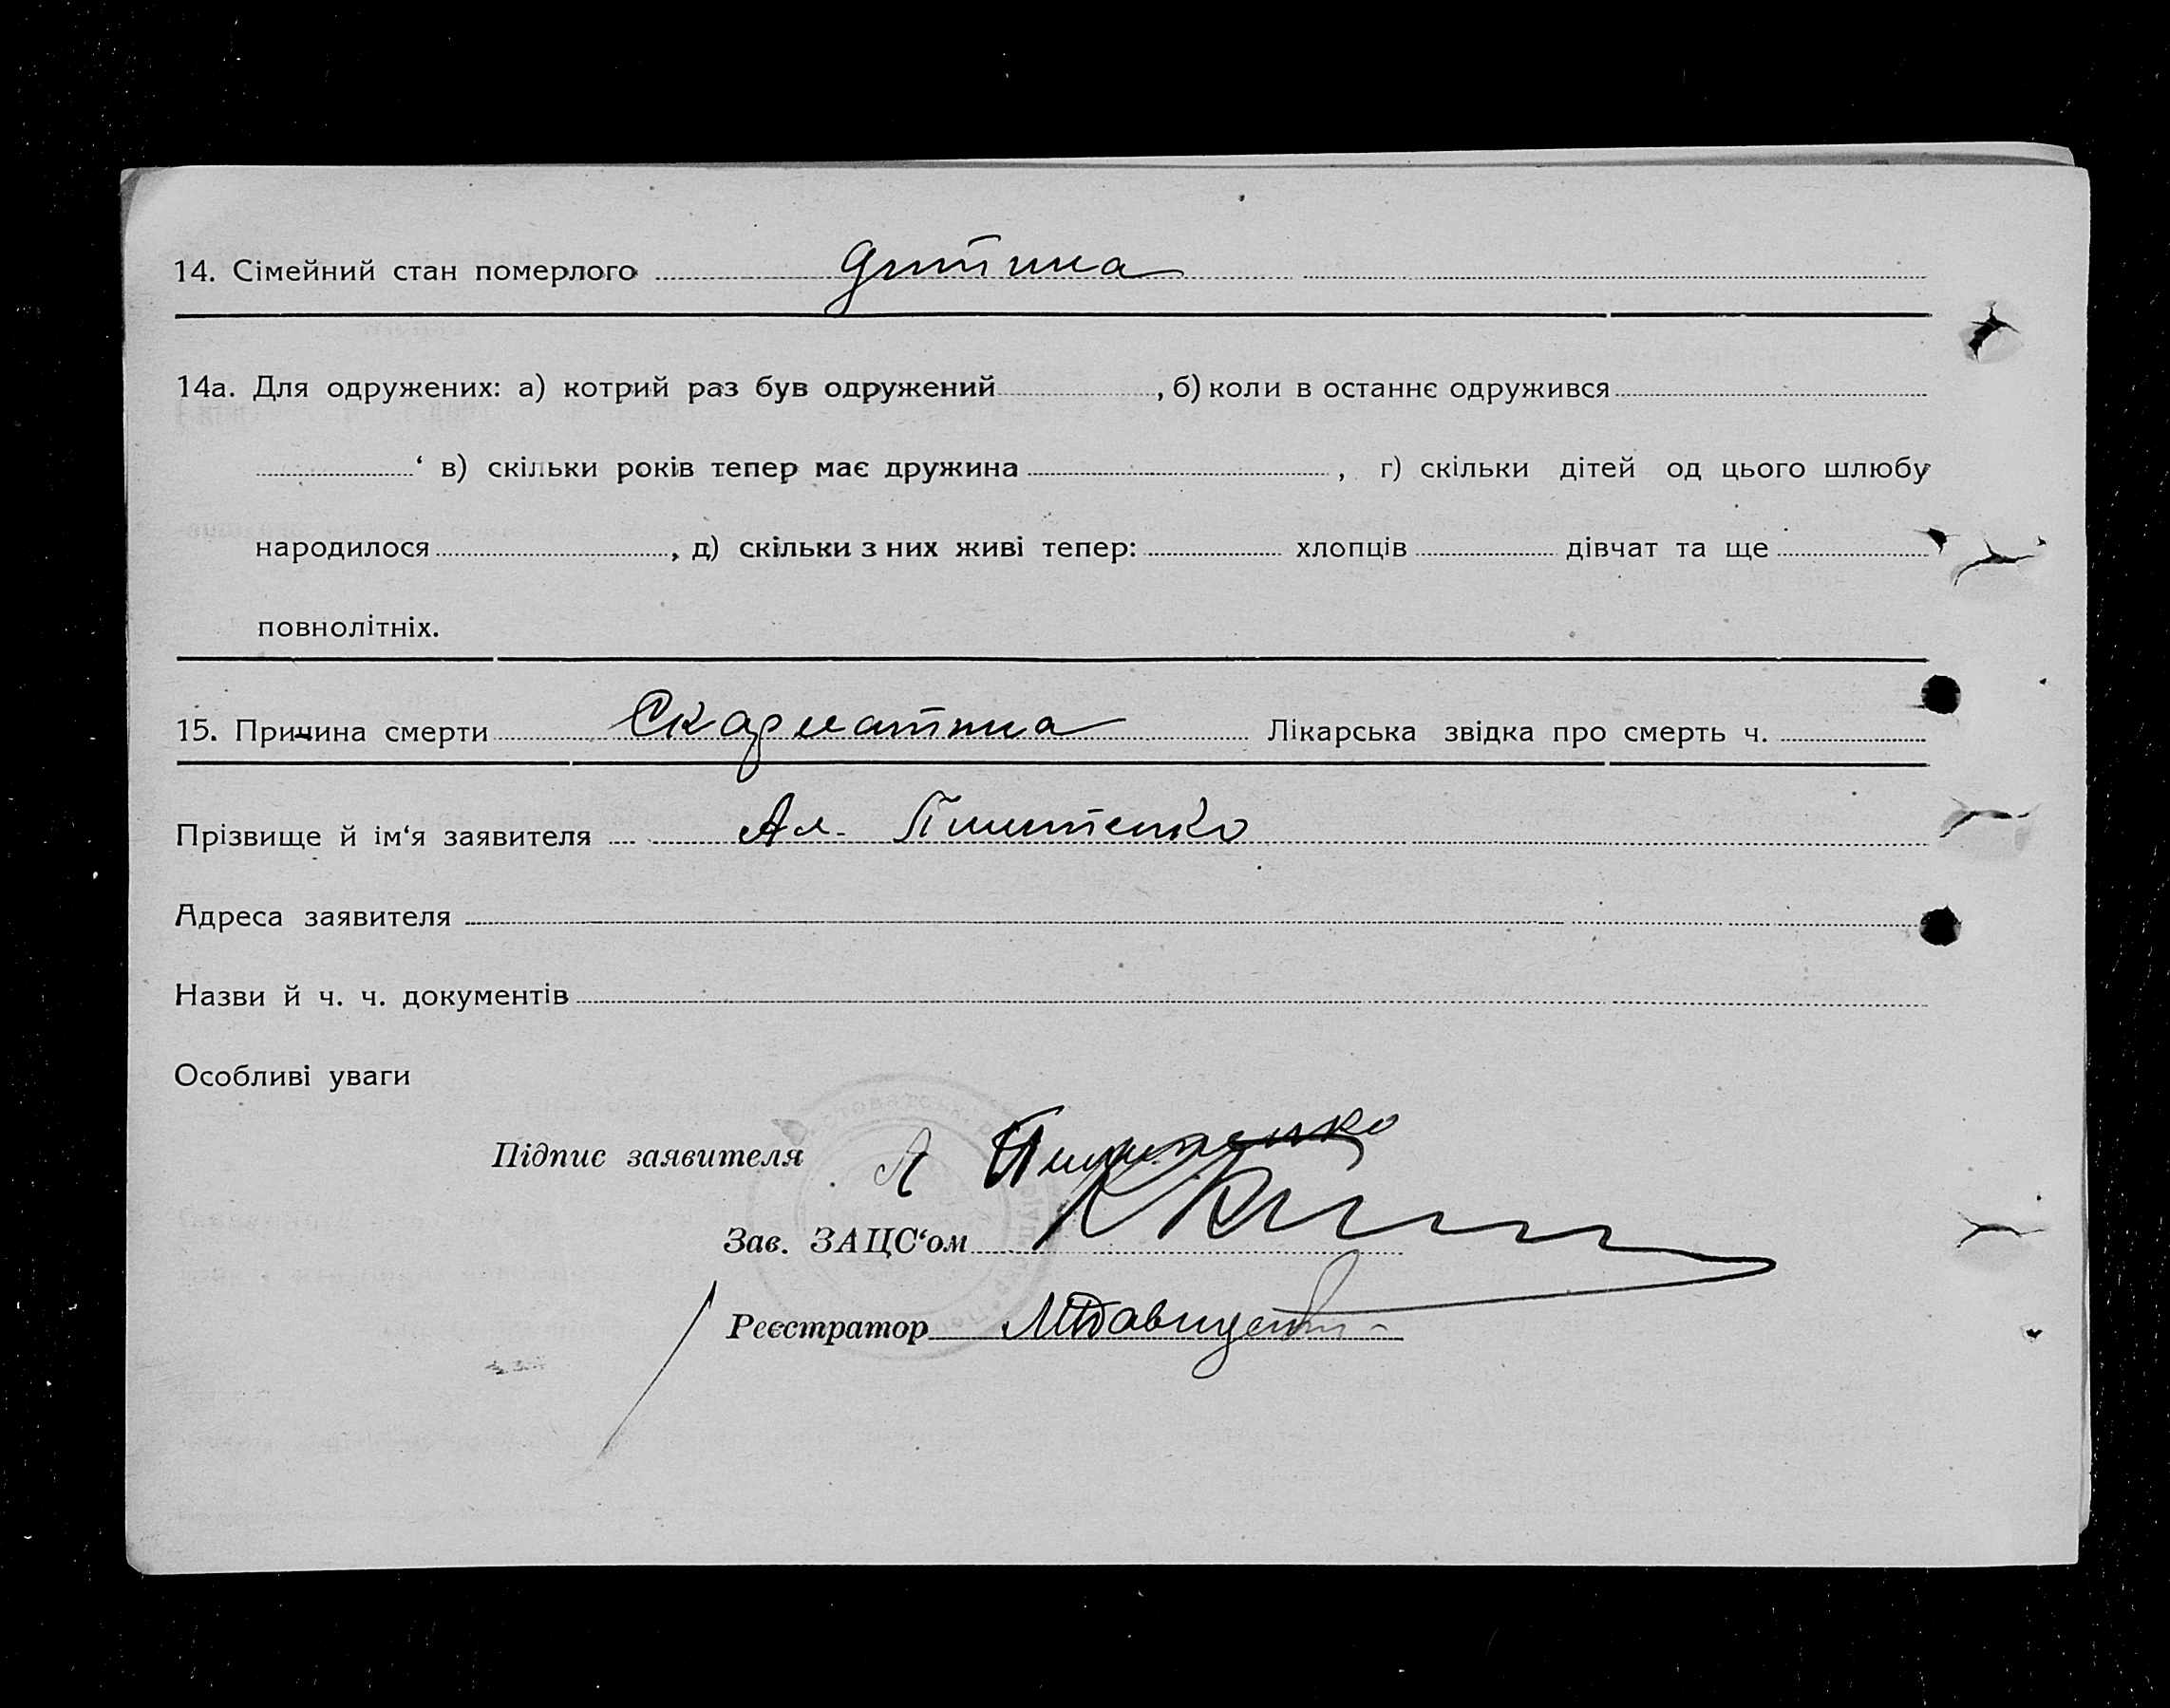 14. Сімейний стан померлого дитина
14а. Для одружених: а) котрий раз був одружений , б) коли в останнє одружився
‘ в) скільки років тепер має дружина , г) скільки дітей од цього шлюбу
народилося , д) скільки з них живі тепер: хлопців дівчат та ще
повнолітніх.
15. Причина смерти Скарлатина Лікарська звідка про смерть ч.
Прізвище й ім‘я заявителя Ал.
Адреса заявителя
Назви й ч. ч. документів
Особливі уваги
Підпис заявителя А
Зав. ЗАЦС‘ом
Реєстратор